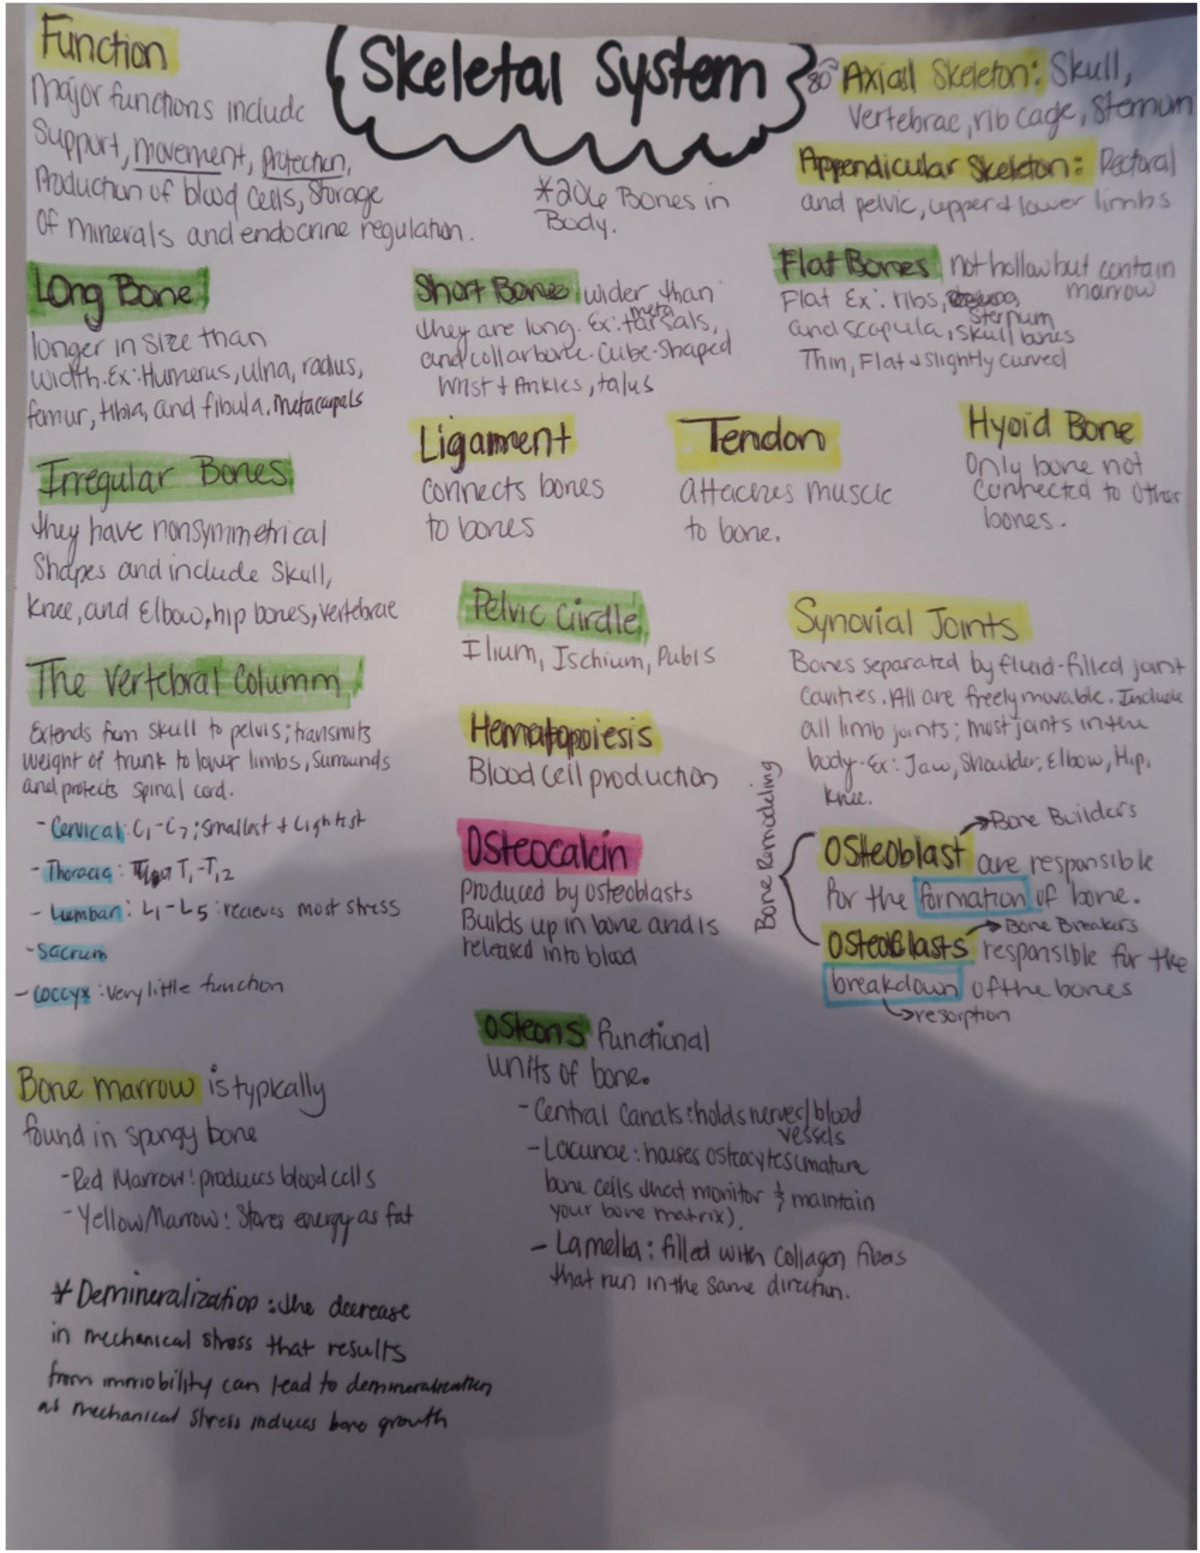 Skeletal System
Function
Major functions include
Support, movement, protection,
Production of blood cells, Storage
of minerals and endocrine regulation.
*206 Bones in
Body.
80 Axial Skeleton: Skull,
Vertebrae, rib cage, Sternum
Appendicular Skeleton: Pectoral
and pelvic, upper & lower limbs
Long Bone
longer in size than
width. Ex: Humerus, ulna, radius,
femur, tibia, and fibula. Metacarpals
Short Bones wider than
they are long. Ex: metatarsals,
and collarbone. Cube-Shaped
Wrist + Ankles, talus
Flat Bones not hollow but contain
marrow
Flat Ex: ribs,
Sternum
and scapula, skull bones
Thin, Flat & slightly curved
Irregular Bones
they have nonsymmetrical
Shapes and include Skull,
Knee, and Elbow, hip bones, vertebrae
Ligament
Connects bones
to bones
Tendon
attaches muscle
to bone.
Hyoid Bone
Only bone not
connected to other
bones.
The Vertebral Columm
Extends from skull to pelvis; transmits
weight of trunk to lower limbs, surrounds
and protects spinal cord.
- Cervical: C1-C7; Smallest + Lightest
- Thoracic: T1-T12
- Lumbar: L1-L5: recieves most stress
- Sacrum
- Coccyx: Very little function
Pelvic Girdle
Ilium, Ischium, Pubis
Hematopoiesis
Blood Cell production
Osteocalcin
Produced by osteoblasts
Builds up in bone and is
released into blood
Synovial Joints
Bones separated by fluid-filled joint
Cavities. All are freely movable. Include
all limb joints; most joints in the
body. Ex: Jaw, Shoulder, Elbow, Hip,
Knee.
Bone Remodeling
Bone Builders
Osteoblast are responsible
for the formation of bone.
Bone Breakers
responsible for the
breakdown of the bones
resorption
Osteons functional
units of bone.
- Central Canals: holds nerves/blood
vessels
- Lacunae: houses osteocytes (mature
bone cells that monitor & maintain
your bone matrix).
- Lamella: filled with collagen fibers
that run in the same direction.
Bone marrow is typically
found in spongy bone
- Red Marrow: produces blood cells
- Yellow Marrow: Stores energy as fat
* Demineralization: the decrease
in mechanical stress that results
from immobility can lead to demineralization
as mechanical stress induces bone growth